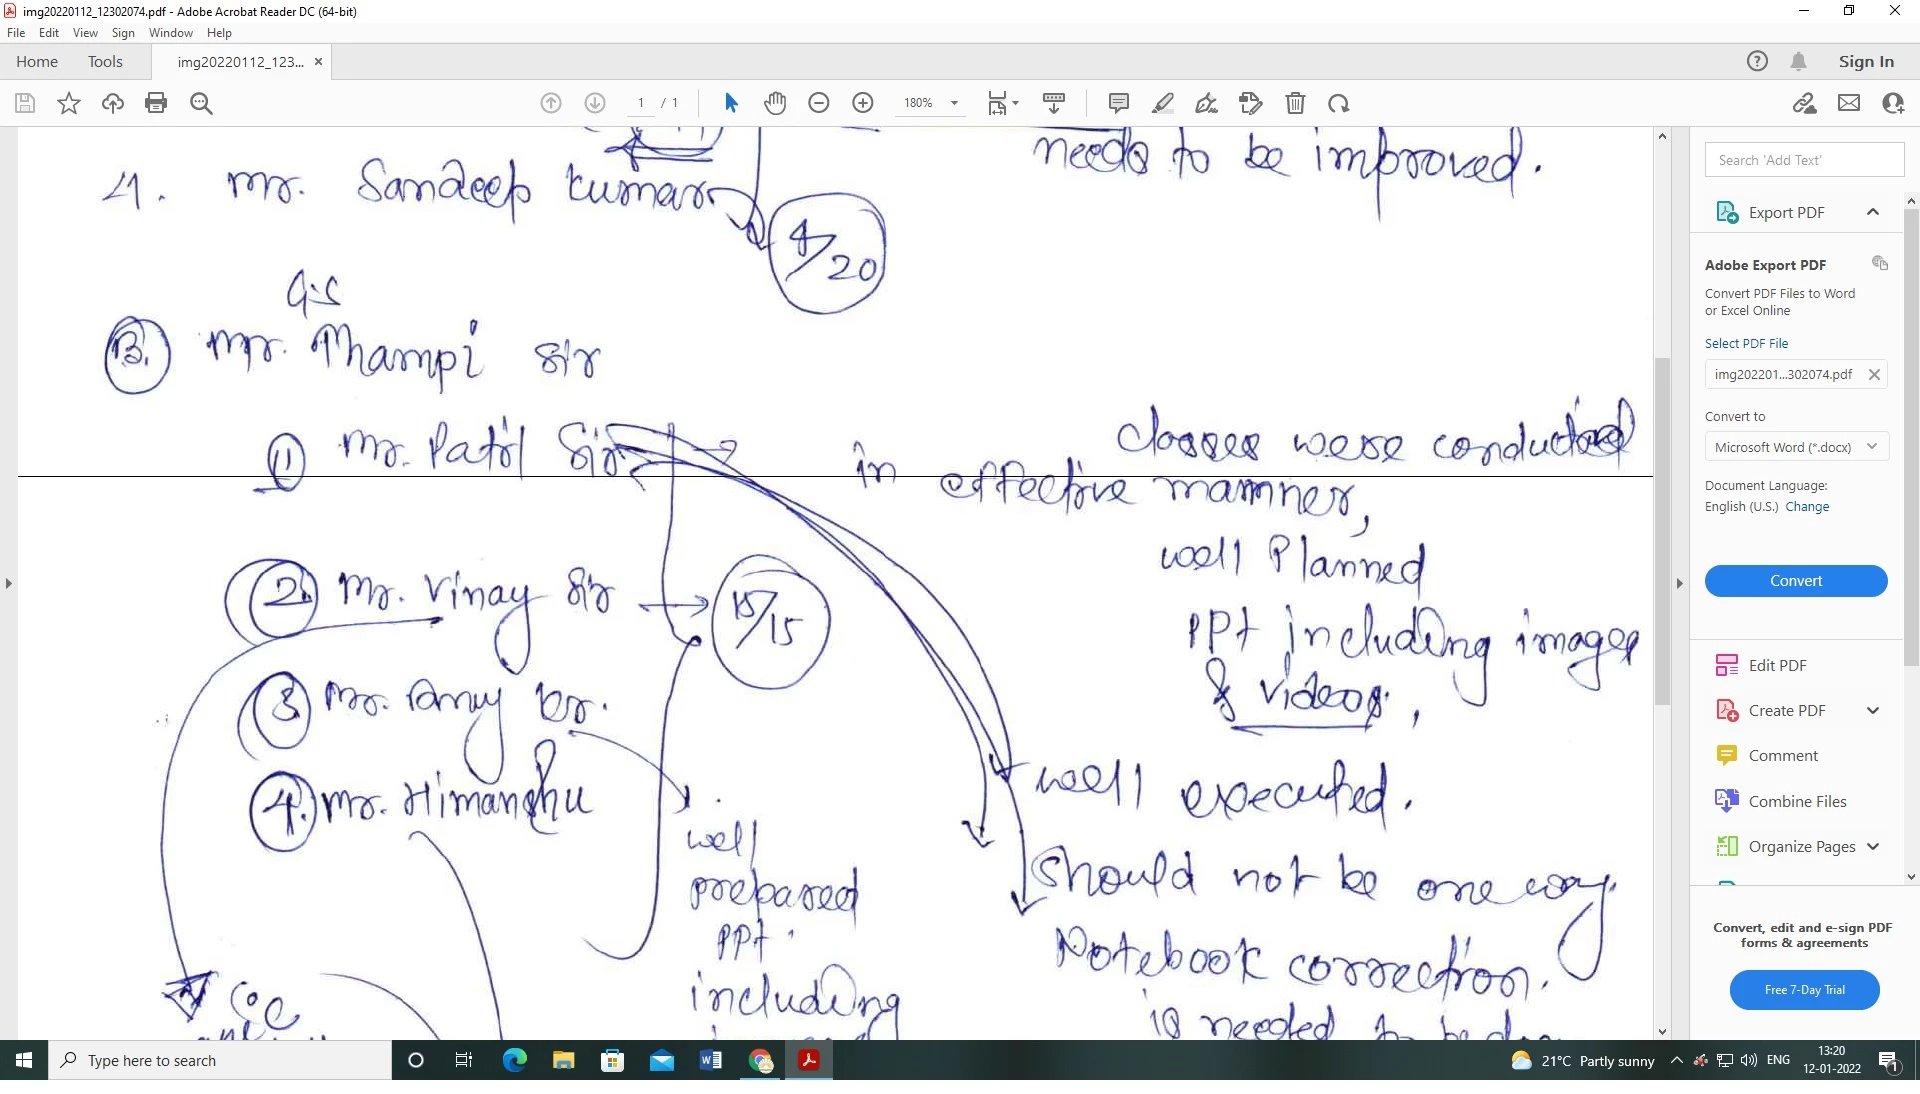 img20220112_12302074.pdf - Adobe Acrobat Reader DC (64-bit)
File Edit View Sign Window Help
Home Tools img20220112_123... × Sign In
1 / 1 180%
needs to be improved.
4. Mr. Sandeep Kumar
20
G.S
B. Mr. Thampi Sir
1 Mr. Patil Sir
classes were conducted
in effective manner,
well Planned
2. Mr. Vinay Sir 15/15
PPt including images
& videos,
3. Mr. kr.
4. Mr. Himanshu
well executed.
well
prepared
PPt.
including
should not be one way.
Notebook correction.
is needed to be
Search 'Add Text'
Export PDF
Adobe Export PDF
Convert PDF Files to Word
or Excel Online
Select PDF File
img202201...302074.pdf
Convert to
Microsoft Word (*.docx)
Document Language:
English (U.S.) Change
Convert
Edit PDF
Create PDF
Comment
Combine Files
Organize Pages
Convert, edit and e-sign PDF
forms & agreements
Free 7-Day Trial
Type here to search
21°C Partly sunny ENG 13:20
12-01-2022
1